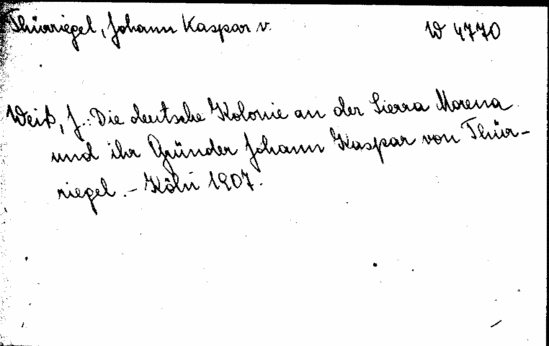 Thürriegel, Johann Kaspar v. W 4770
Weiß, J.: Die deutsche Kolonie an der Sierra Morena
und ihr Gründer Johann Kaspar von Thür-
riegel. - Köln 1907.